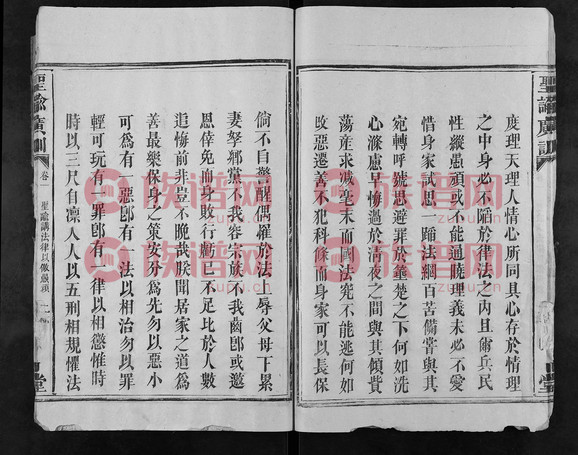 聖諭廣訓
度理天理人情心所同具心存於情理
之中身必不陷於律法之內且爾兵民
性縱愚頑或不能通曉理義未必不愛
惜身家試思一蹈法網百苦備嘗與其
宛轉呼號思避罪於箠楚之下何如洗
心滌慮早悔過於清夜之間與其傾貲
蕩產求減毫末而國法究不能逃何如
改惡遷善不犯科條而身家可以長保
倘不自警醒偶罹於法上辱父母下累
妻孥鄉黨不我容宗族不我齒即或邀
恩倖免而身敗行虧已不足比於人數
追悔前非豈不晚哉朕聞居家之道為
善最樂保身之策安分為先勿以惡小
可為有一惡即有一法以相治勿以罪
輕可玩有一罪即有一律以相懲惟時
時以三尺自凜人人以五刑相規懼法
聖諭廣訓
卷
聖諭講法律以儆愚頑
堂
堂
族谱网
族谱网
族谱网
族谱网